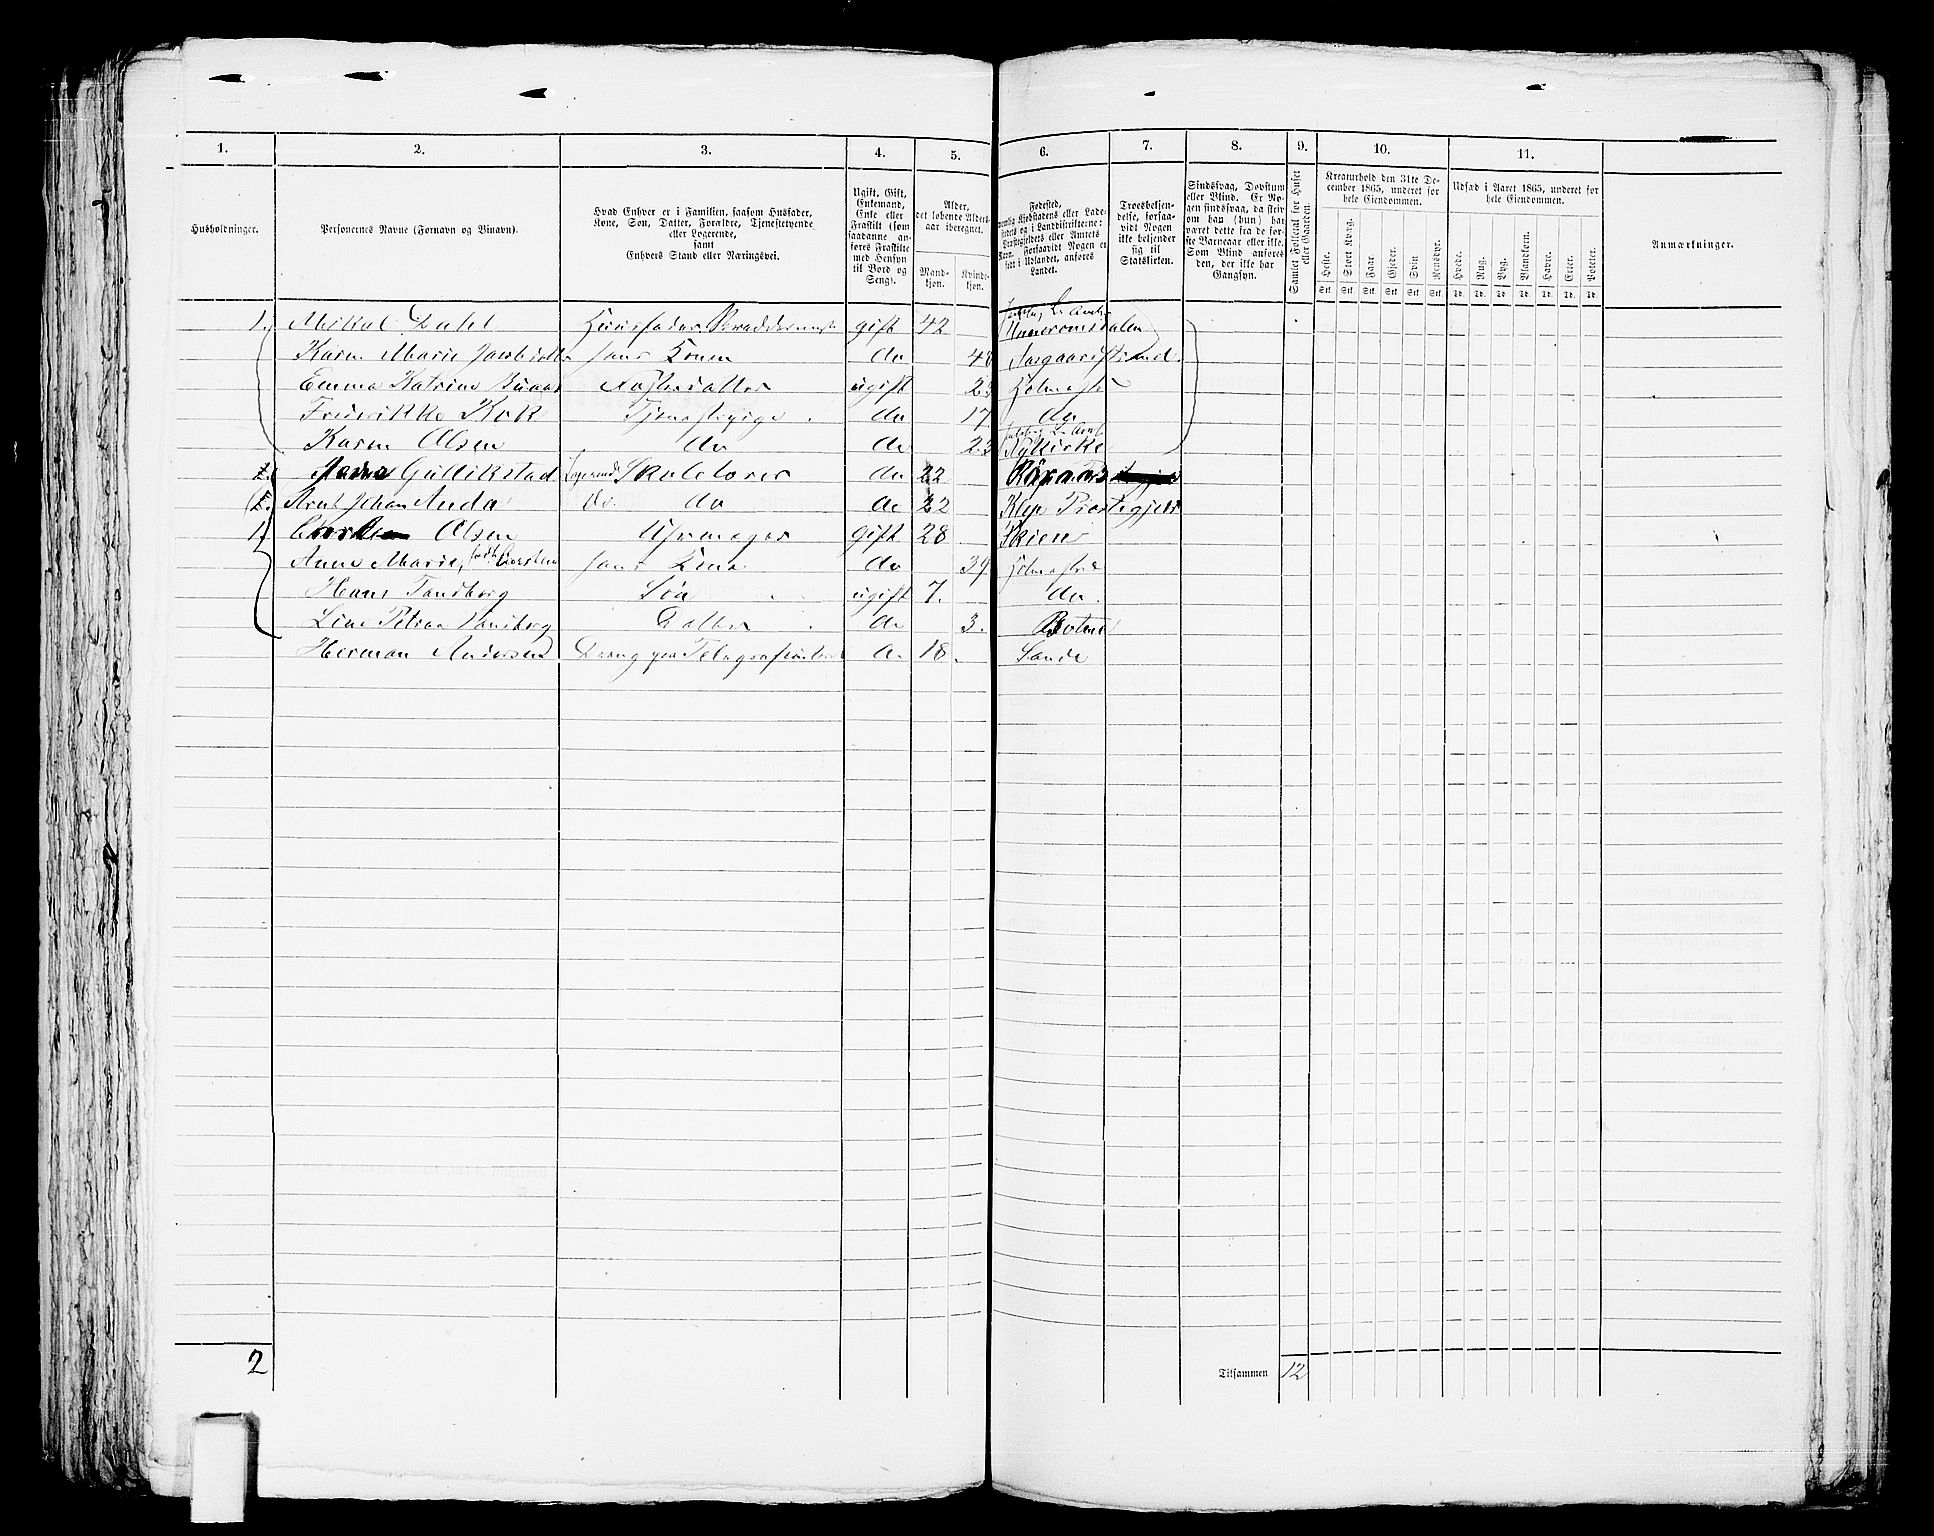 1. 2. 3. 4. 5. 6. 7. 8. 9. 10. 11.
Husholdninger.
Personernes Navne (Fornavn og Binavn).
Hvad Enhver er i Familien, saasom Husfader,
Kone, Søn, Datter, Forældre, Tjenestetyende
eller Logerende,
samt
Enhvers Stand eller Næringsvei.
Ugift, Gift,
Enkemand,
Enke eller
Fraskilt (som
saadanne an-
føres Fraskilte
med Hensyn
til Bord og
Seng).
Alder,
det løbende Alders-
aar iberegnet.
Mand-
kjøn.
Kvinde-
kjøn.
Fødested,
nemlig Kjøbstadens eller Lade-
stedets og i Landdistrikterne:
Præstegjeldets eller Amtets
Navn. Forsaavidt Nogen er
født i Udlandet, anføres
Landet.
Troesbekjen-
delse, forsaa-
vidt Nogen
ikke bekjender
sig til
Statskirken.
Sindssvag, Døvstum
eller Blind. Er No-
gen sindssvag, da skri-
ves han (hun) har
været dette fra de før-
ste Barneaar eller ikke.
Som Blind anføres
den, der ikke har
Gangsyn.
Samlet Folketal for Huset
eller Gaarden.
Kreaturhold den 31te De-
cember 1865, underet for
hele Eiendommen.
Heste. Stort Kvæg. Faar. Gjeder. Svin. Rensdyr.
Stk. Stk. Stk. Stk. Stk. Stk.
Udsæd i Aaret 1865, underet for
hele Eiendommen.
Hvede. Rug. Byg. Blandkorn. Havre. Erter. Poteter.
Td. Td. Td. Td. Td. Td. Td.
Anmærkninger.
1. Mikal Dahl Huusfader gift 42
Karen Marie hans Konen do Aasgaardstrand
Emma Katrine ugift Holmestr
Frederikke Kok Tjenestepige do 17 do
Karen Olsen do do 23 Nykirke
2. Gullikstad Logerende Skolelærer do 22
Arnt Johan Anda do. do do 22 Klep Præstegjeld
1. Olsen Uhrmager gift 28 Skien
Anne Marie, født hans Kone do 39 Holmestrd
Hans Sandborg Søn ugift 7. do.
Line Petrea Sandborg Datter do 3. Botne
Herman Andersen Dreng paa do 18 Sande
2
Tilsammen 12